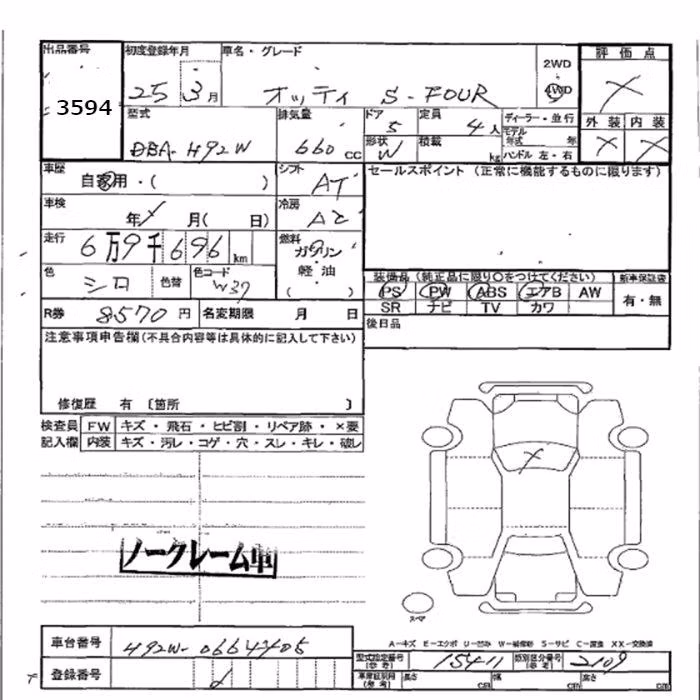 出品番号 初度登録年月 車名・グレード 2WD 4WD 評価点
3594 25 3月 オッティ S-FOUR ×
型式 排気量 ドア 定員 ディーラー・並行 外装 内装
DBA-H92W 660 CC 5 4人 モデル年式 年 × ×
形状 W 積載 kg ハンドル 左・右
車歴 自家用・( ) シフト AT セールスポイント(正常に機能するものに限ります)
車検 年 月( 日) 冷房 AC
走行 6万9千696km 燃料 ガソリン
軽油
( )
色 シロ 色替 色コード W37
装備品(純正品に限り○をつけてください) 新車保証書
PS PW ABS エアB AW 有・無
SR ナビ TV カワ
R券 8570円 名変期限 月 日 後日品
注意事項申告欄(不具合内容等は具体的に記入して下さい)
修復歴 有 〔箇所 〕
検査員 FW キズ・飛石・ヒビ割・リペア跡・×要
記入欄 内装 キズ・汚レ・コゲ・穴・スレ・キレ・破レ
×
ノークレーム車
スペア
A-キズ E-エクボ U-凹み W-補修跡 S-サビ C-腐食 XX-交換済
車台番号 H92W-0664405
登録番号
型式指定番号(参考) 15411 類別区分番号(参考) 2109
車庫証明用(参考) 長さ cm 幅 cm 高さ cm